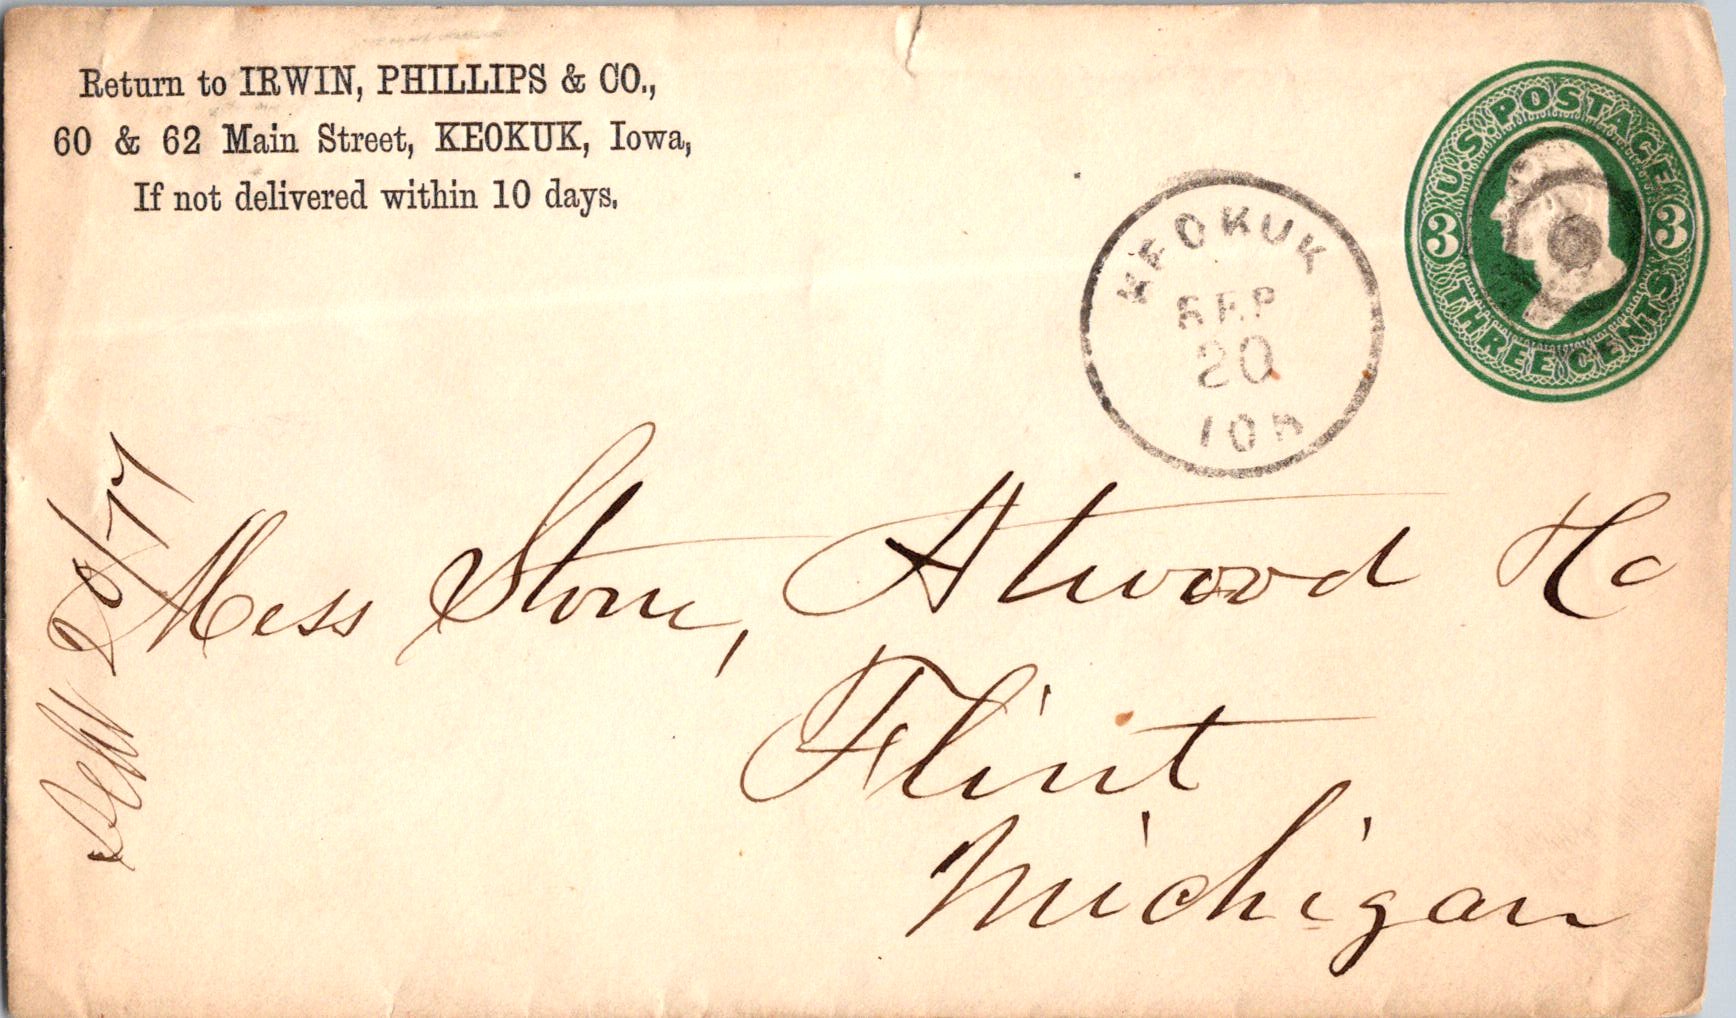 Return to IRWIN, PHILLIPS & CO.,
60 & 62 Main Street, KEOKUK, Iowa,
If not delivered within 10 days.
U.S. POSTAGE
3 3
THREE CENTS
KEOKUK
SEP
20
IOA
Sept 20/77
Mess Stone, Atwood & Co
Flint
Michigan